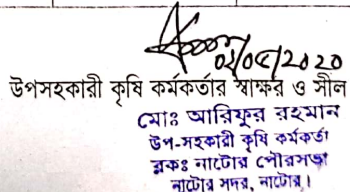 ০২/০৫/২০২০
উপসহকারী কৃষি কর্মকর্তার স্বাক্ষর ও সীল
মোঃ আরিফুর রহমান
উপ-সহকারী কৃষি কর্মকর্তা
ব্লকঃ নাটোর পৌরসভা
নাটোর সদর, নাটোর।